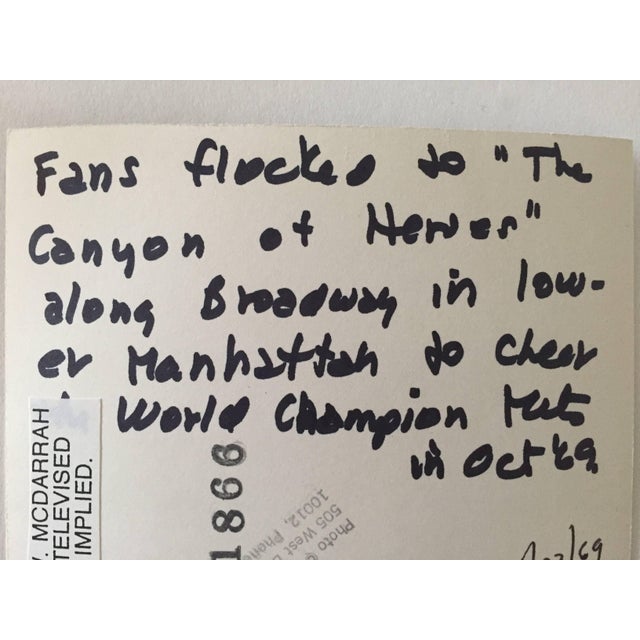 Fans flocked to "The
Canyon of Heroes"
along Broadway in low-
er Manhattan to cheer
World Champion Mets
in Oct '69
. MCDARRAH
TELEVISED
IMPLIED.
1866
Photo ©
505 West
10012, Phone